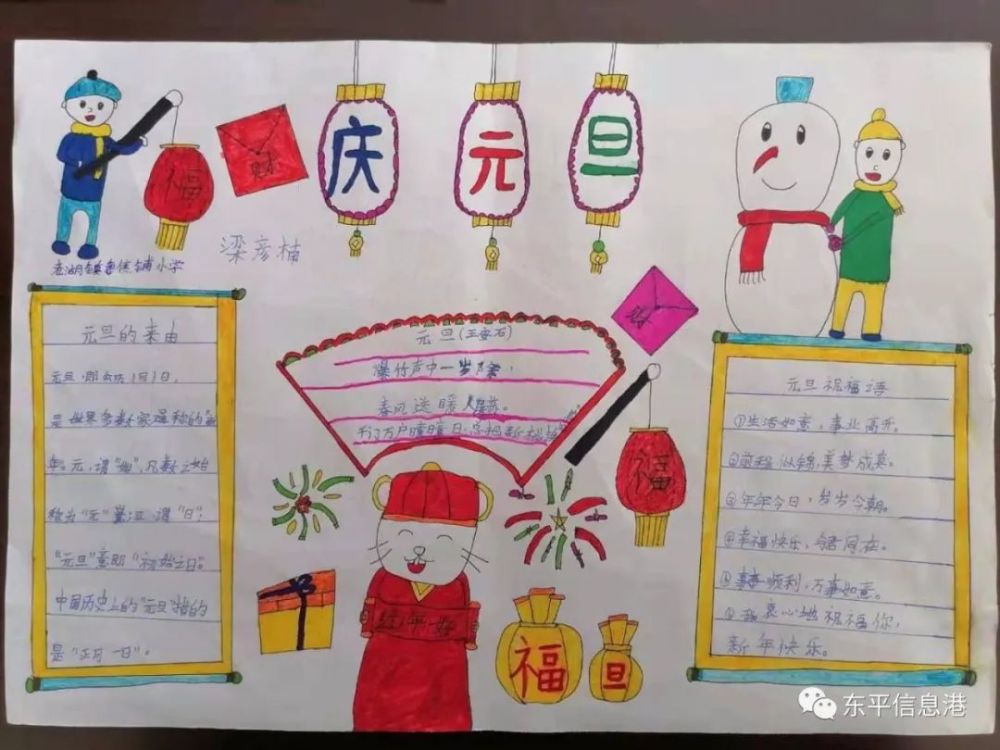 庆 元 旦
福
财
梁彦楠
老湖镇 铺小学
元旦的来由
元旦,即公历1月1日,
是世界多数国家通称的"新
年。元,谓"始",凡数之始
称为"元" 谓"日";
"元旦"意即"初始之日"。
中国历史上的"元旦"指的
是"正月一日"。
元旦(王安石)
爆竹声中一岁除,
春风送暖入屠苏。
千门万户曈曈日,总把新桃
福
元旦祝福语
①生活如意,事业高升。
②前程似锦,美梦成真。
③年年今日,岁岁今朝。
④幸福快乐,与君同在。
事事顺利,万事如意。
我衷心地祝福你,
新年快乐。
福
旦
东平信息港